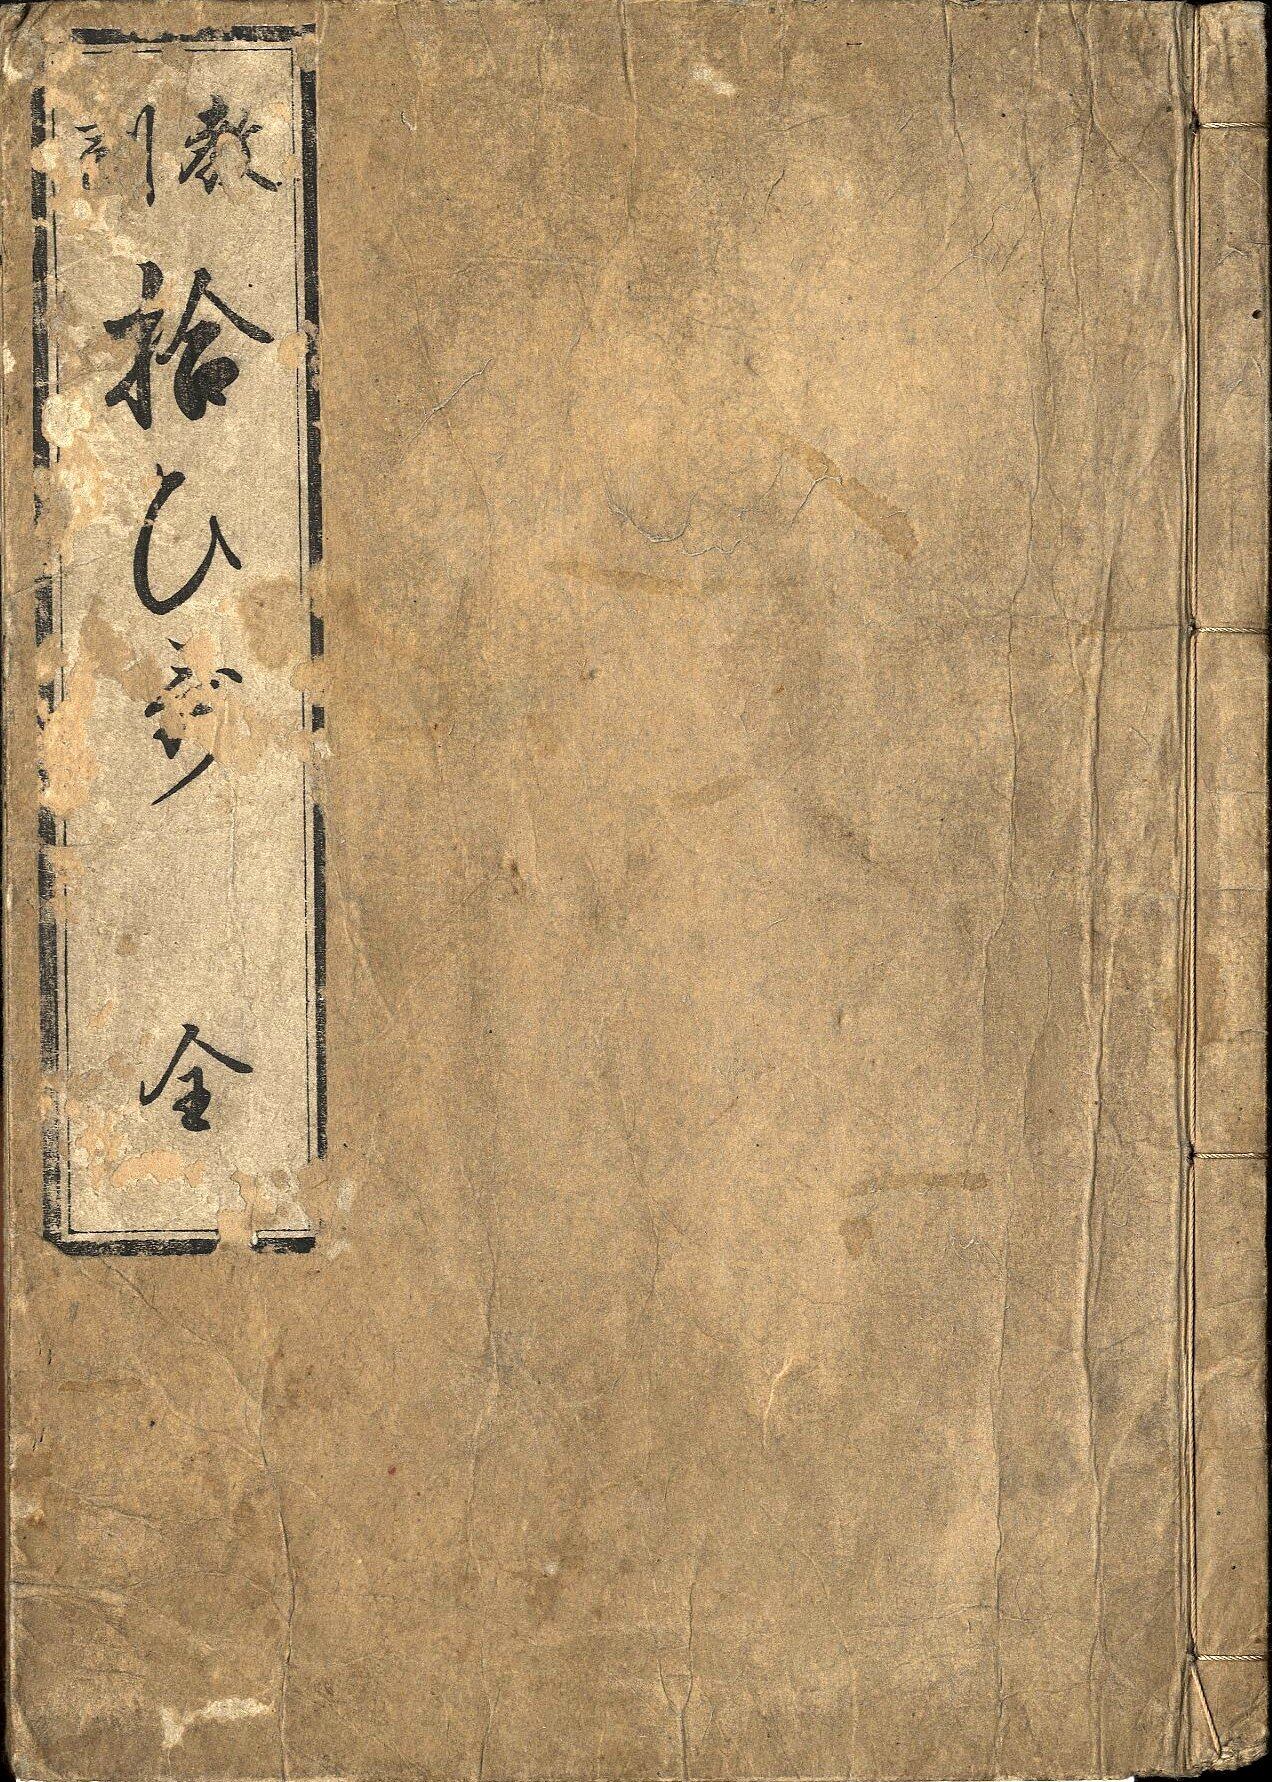 教訓
拾ひ
全